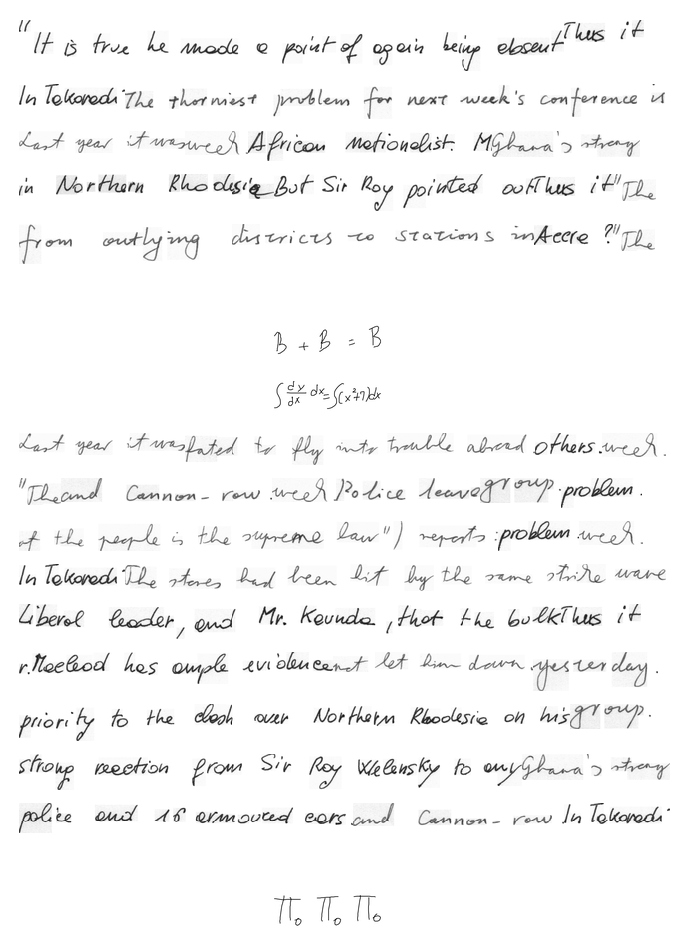 "It is true he made a point of again being absent Thus it
In Takoradi The thorniest problem for next week's conference is
Last year it was week African nationalist. M Ghana's strong
in Northern Rhodesia But Sir Roy pointed out Thus it "The
from outlying districts to stations in Accra ?" The
B + B = B
∫ dy/dx dx = ∫(x²+7)dx
Last year it was fated to fly into trouble abroad others. week.
"The and Cannon-row. week Police leave group. problem.
of the people is the supreme law") reports: problem week.
In Takoradi The stores had been hit by the same strike wave
Liberal leader, and Mr. Kaunda, that the bulk Thus it
r. Macleod has ample evidence not let him down yesterday.
priority to the clash over Northern Rhodesia on his group.
strong reection from Sir Roy Welensky to any Ghana's strong
police and 16 armoured cars and Cannon-row In Takoradi
Π₀ Π₀ Π₀